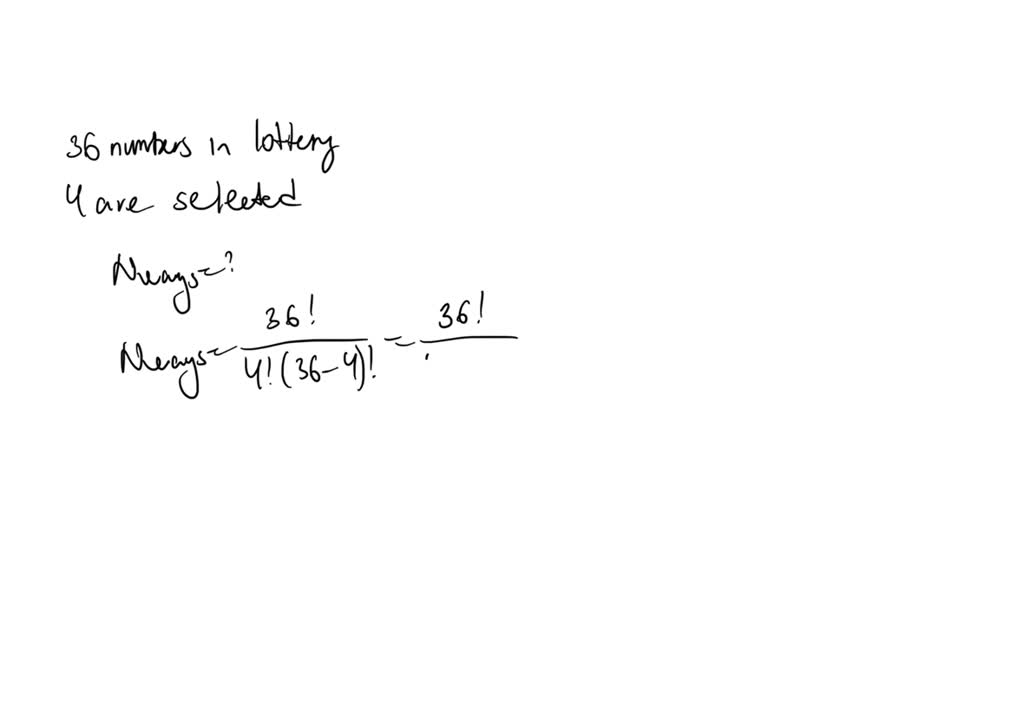 36 numbers in lottery
4 are selected
Nways=?
Nways= 36! / 4!(36-4)! = 36! /